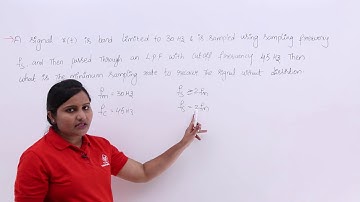 → A signal x(t) is band limited to 30 Hz & is sampled using sampling frequency
fs and then passed through an L.P.F with cutoff frequency 45 Hz. Then
what is the minimum sampling rate to recover the signal without distortion.
fm = 30 Hz
fs ≥ 2fm
fc = 45 Hz
fs = 2fm